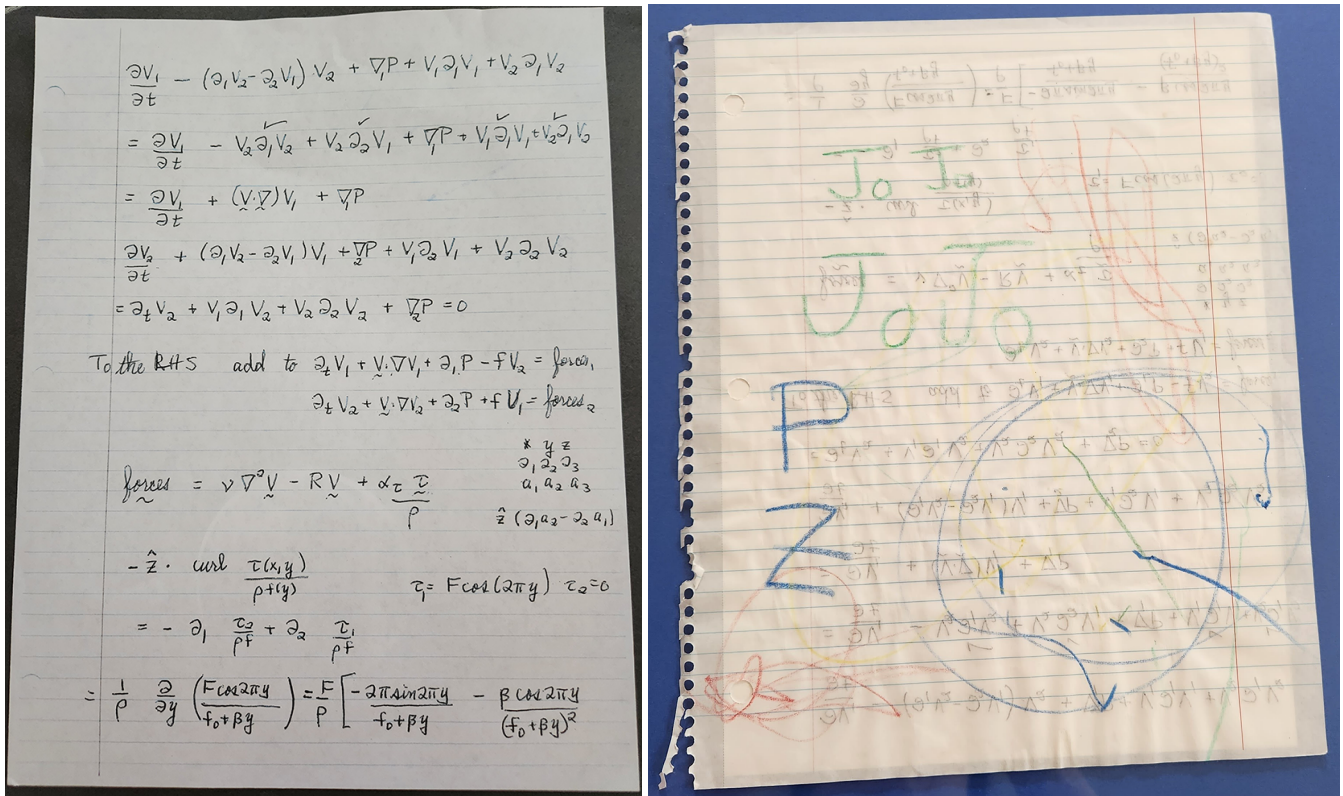 ∂V₁/∂t − (∂₁V₂−∂₂V₁)V₂ + ∇₁P + V₁∂₁V₁ + V₂∂₁V₂
= ∂V₁/∂t − V₂∂₁V₂ + V₂∂₂V₁ + ∇₁P + V₁∂₁V₁ + V₂∂₁V₂
= ∂V₁/∂t + (V·∇)V₁ + ∇₁P
∂V₂/∂t + (∂₁V₂−∂₂V₁)V₁ + ∇₂P + V₁∂₂V₁ + V₂∂₂V₂
= ∂ₜV₂ + V₁∂₁V₂ + V₂∂₂V₂ + ∇₂P = 0
To the RHS add to ∂ₜV₁ + V·∇V₁ + ∂₁P − fV₂ = forces₁
∂ₜV₂ + V·∇V₂ + ∂₂P + fV₁ = forces₂
x y z
∂₁ ∂₂ ∂₃
a₁ a₂ a₃
forces = ν∇²V − RV + α_τ τ/ρ
ẑ (∂₁a₂−∂₂a₁)
−ẑ · curl τ(x,y)/ρf(y) τ₁ = Fcos(2πy) τ₂=0
= − ∂₁ τ₂/ρf + ∂₂ τ₁/ρf
= 1/ρ ∂/∂y (Fcos2πy/f₀+βy) = F/ρ [−2πsin2πy/f₀+βy − βcos2πy/(f₀+βy)²
JoJo
JoJo
P
Z